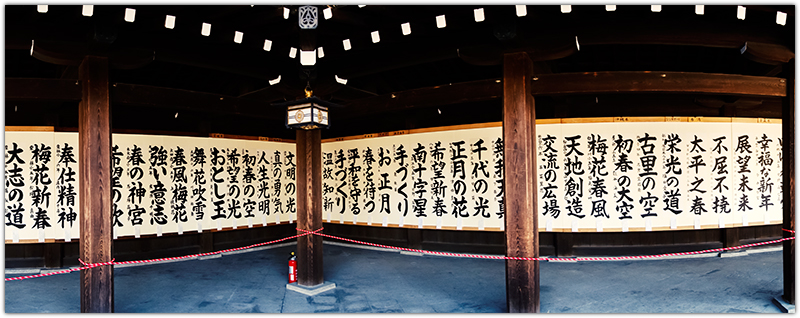 大志の道
梅花新春
奉仕精神
希望の歌
春の神宮
強い意志
春風梅花
舞花吹雪
おとし玉
希望の光
初春の空
真の勇気
人生光明
文明の光
温故知新
手づくり
平和を守る
春を待つ
お正月
手づくり
南十字星
希望新春
正月の花
千代の光
交流の広場
天地創造
梅花春風
初春の大空
古里の空
栄光の道
太平之春
不屈不撓
展望未来
幸福な新年